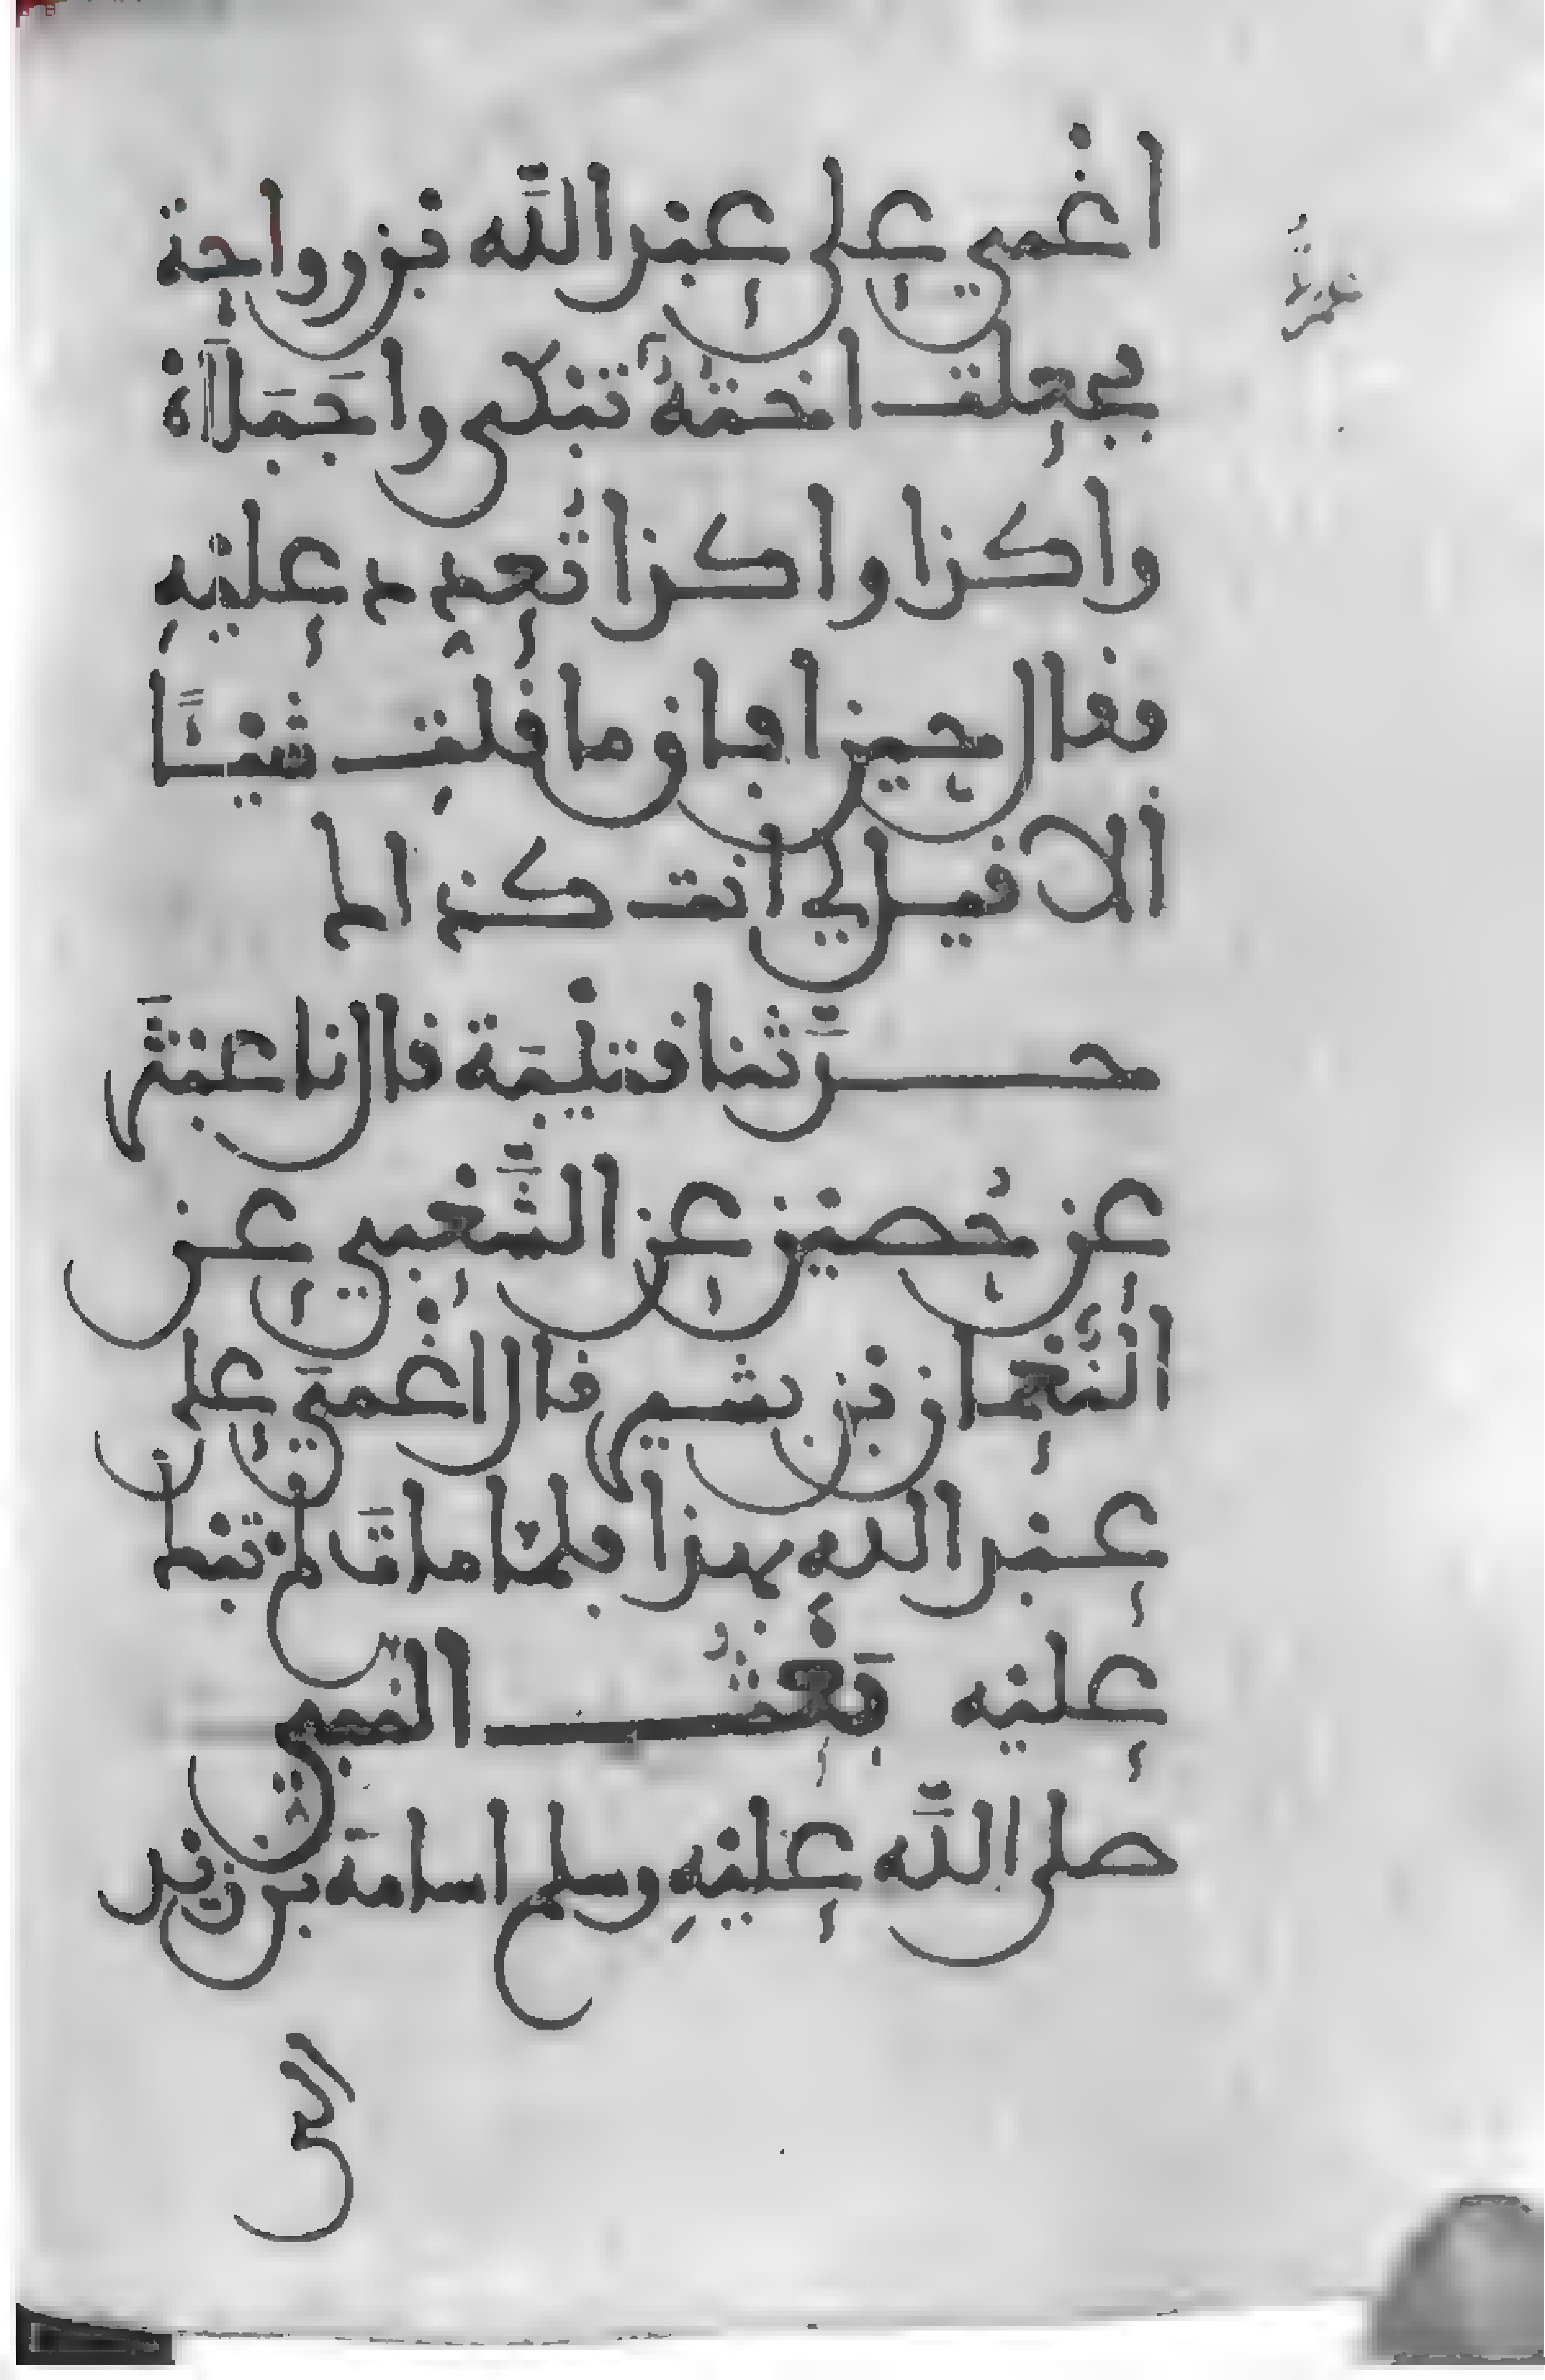 اغمي على عبد الله بن رواحة
فجعلت اخته تبكي واجبلاه
واكذا واكذا تعدد عليه
فقال حين افاق ما قلت شيئًا
الا قيل لي انت كذالك
حدَّثنا قتيبة قال نا عبثر
عن حُصين عن الشَّعبي عن
النُّعمان بن بشير قال اغمي على
عبد الله بهذا فلمّا مات لم تبك
عليه بَعْثُ النبي
صلى الله عليه وسلم اسامة بن زيد
الى